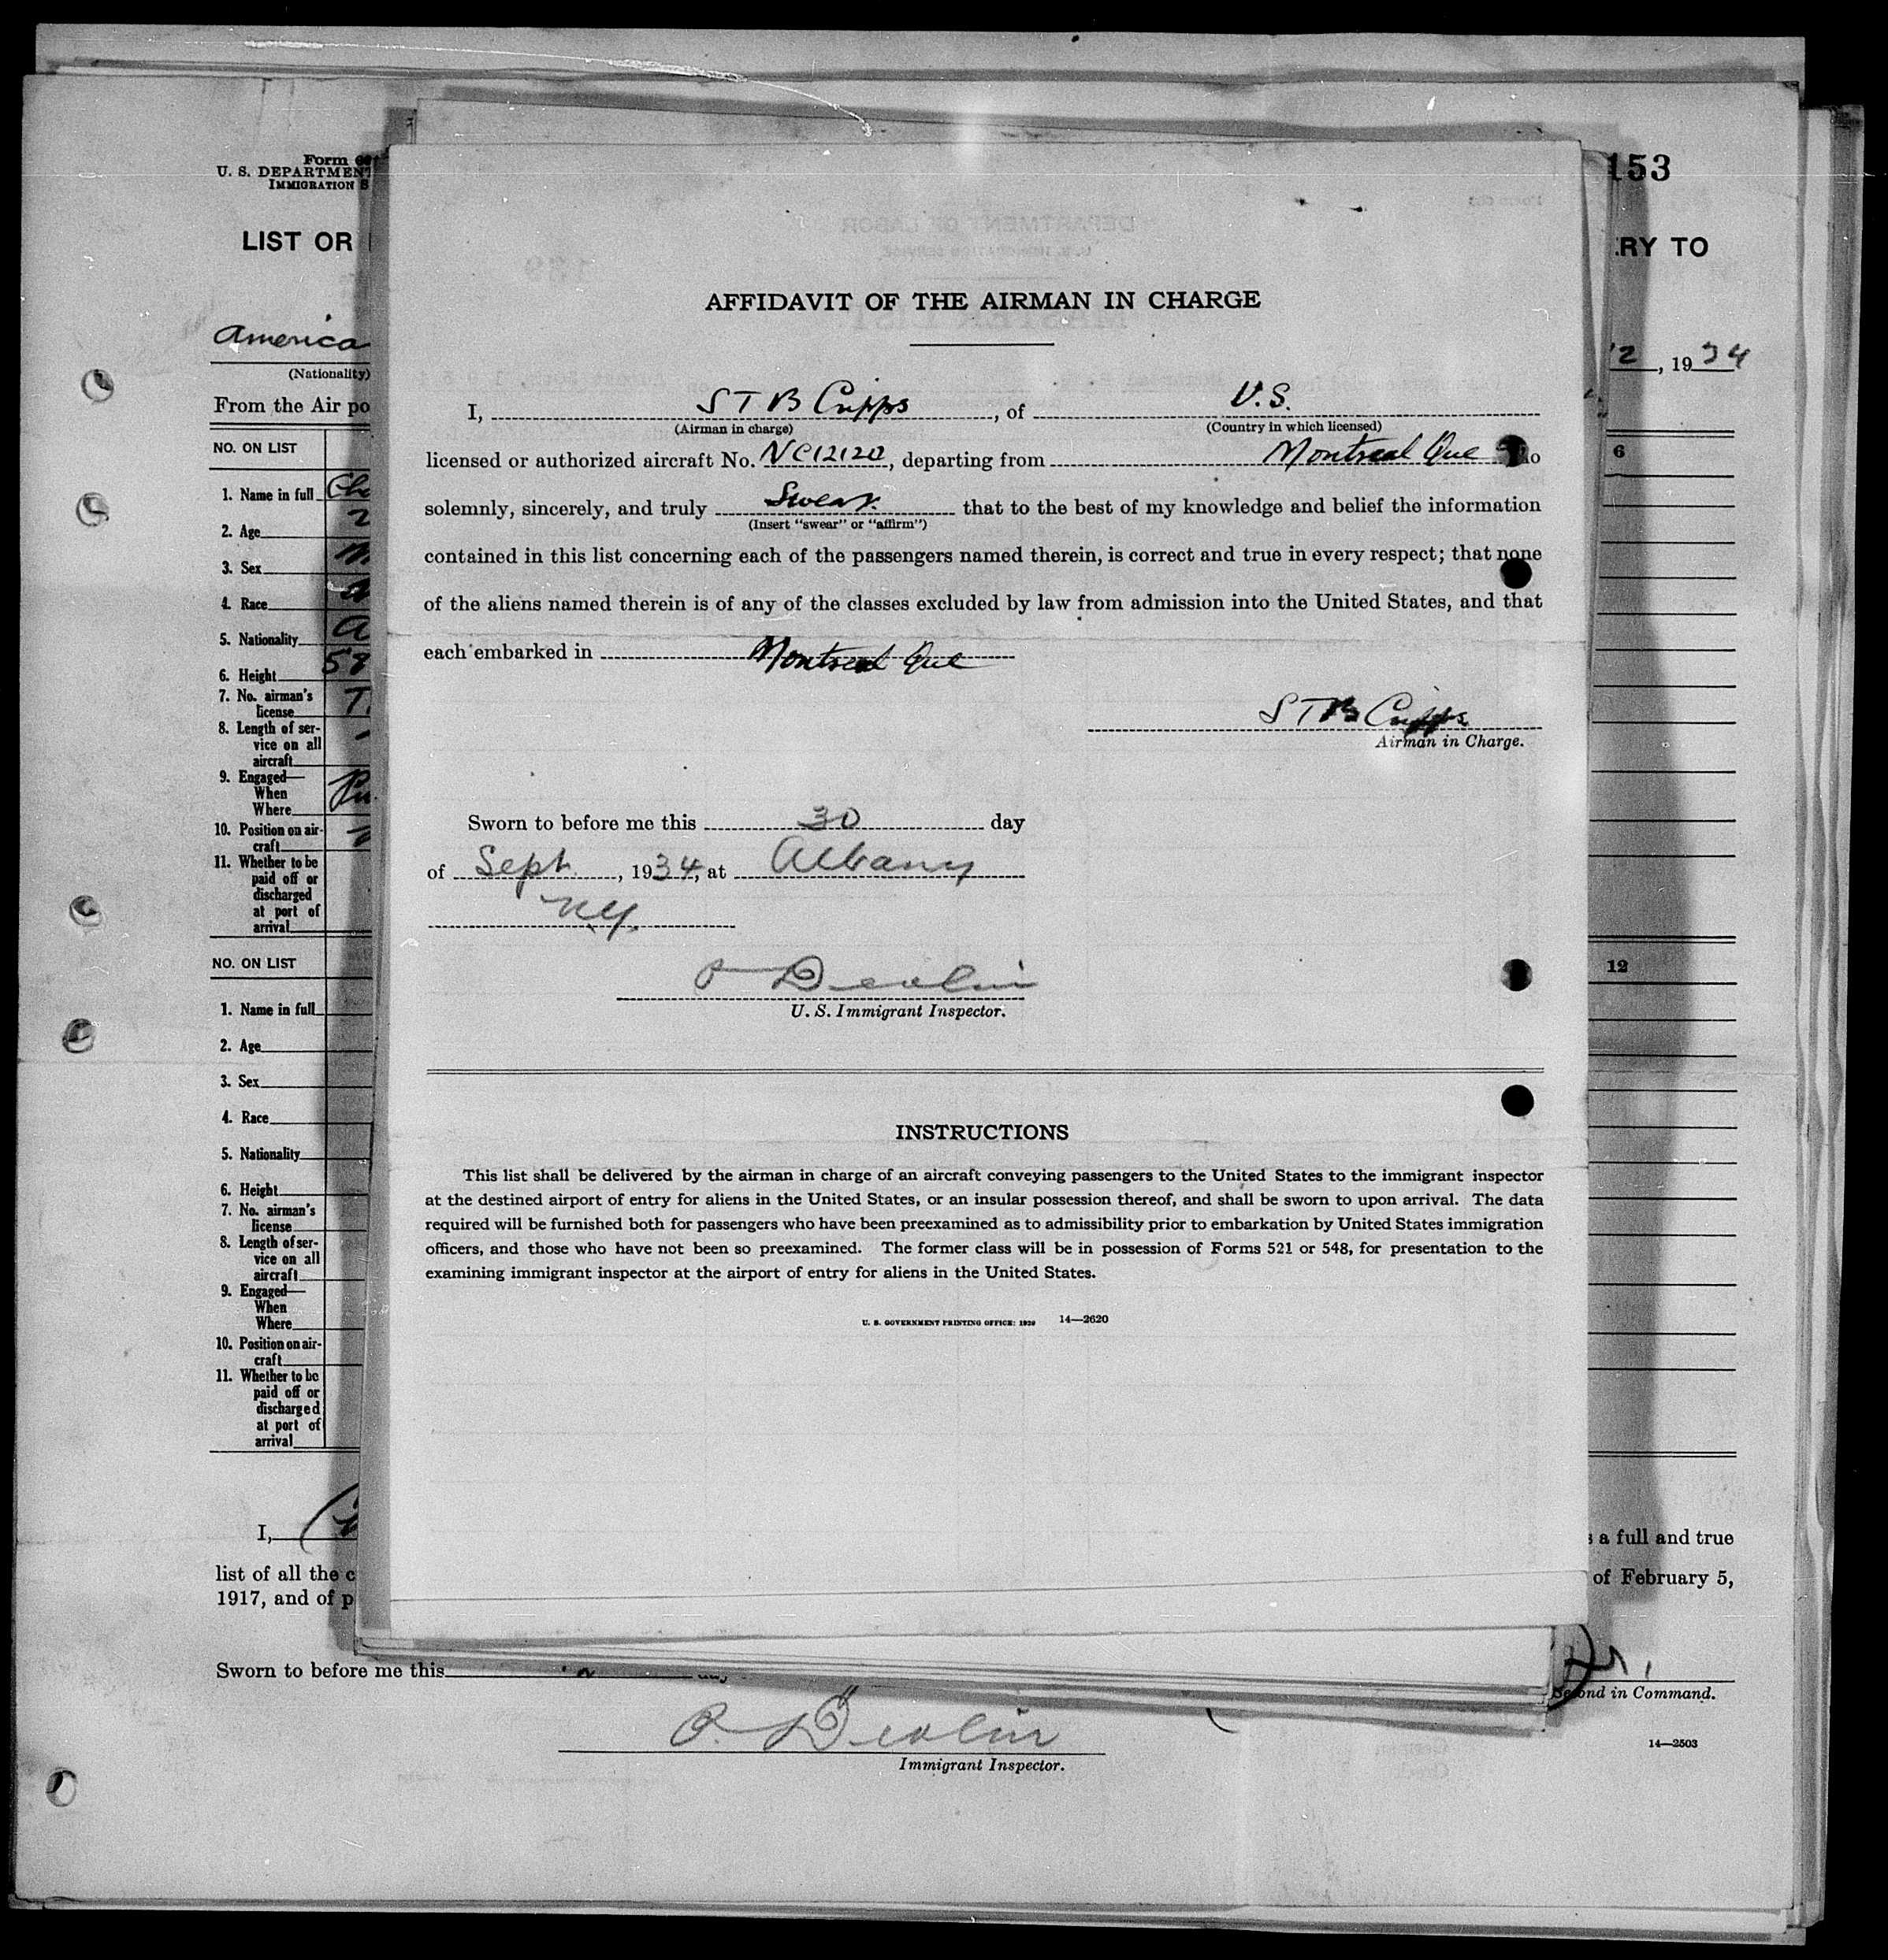 Form
U. S. DEPARTMENT
IMMIGRATION S
153
LIST OR
RY TO
America
(Nationality)
2, 1934
From the Air po
NO. ON LIST
6
1. Name in full
2. Age
3. Sex
4. Race
5. Nationality
6. Height 58
7. No. airman's
license T.
8. Length of ser-
vice on all
aircraft
9. Engaged—
When
Where
10. Position on air-
craft
11. Whether to be
paid off or
discharged
at port of
arrival
NO. ON LIST
12
1. Name in full
2. Age
3. Sex
4. Race
5. Nationality
6. Height
7. No. airman's
license
8. Length of ser-
vice on all
aircraft
9. Engaged—
When
Where
10. Position on air-
craft
11. Whether to be
paid off or
discharged
at port of
arrival
I,
a full and true
list of all the c
of February 5,
1917, and of p
Sworn to before me this
Second in Command.
P. Devlin
Immigrant Inspector.
14—2503
AFFIDAVIT OF THE AIRMAN IN CHARGE
I, S T B Cripps, of U.S.
(Airman in charge) (Country in which licensed)
licensed or authorized aircraft No. NC12120, departing from Montreal Que do
solemnly, sincerely, and truly Swear that to the best of my knowledge and belief the information
(Insert "swear" or "affirm")
contained in this list concerning each of the passengers named therein, is correct and true in every respect; that none
of the aliens named therein is of any of the classes excluded by law from admission into the United States, and that
each embarked in Montreal Que
S T B Cripps
Airman in Charge.
Sworn to before me this 30 day
of Sept., 1934, at Albany
NY.
P Devlin
U. S. Immigrant Inspector.
INSTRUCTIONS
This list shall be delivered by the airman in charge of an aircraft conveying passengers to the United States to the immigrant inspector
at the destined airport of entry for aliens in the United States, or an insular possession thereof, and shall be sworn to upon arrival. The data
required will be furnished both for passengers who have been preexamined as to admissibility prior to embarkation by United States immigration
officers, and those who have not been so preexamined. The former class will be in possession of Forms 521 or 548, for presentation to the
examining immigrant inspector at the airport of entry for aliens in the United States.
U. S. GOVERNMENT PRINTING OFFICE: 1929 14—2620